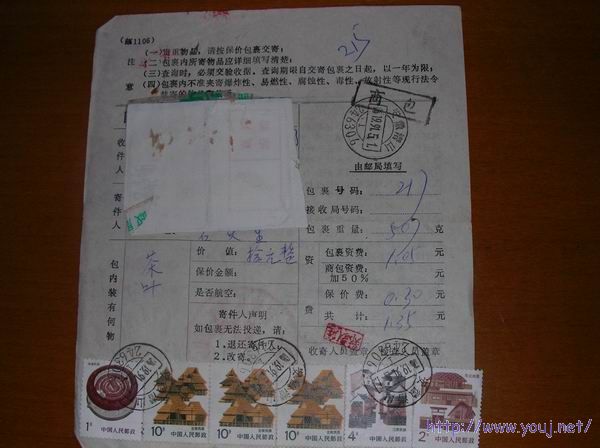 (邮1106)
215
(一)贵重物品，请按保价包裹交寄；
注 (二)包裹内所寄物品应详细填写清楚；
(三)查询时，必须交验收据，查询期限自交寄包裹之日起，以一年为限；
意 (四)包裹内不准夹寄爆炸性、易燃性、腐蚀性、毒性、放射性等现行法令
商包
收件人
由邮局填写
包裹号码： 217
接收局号码：
寄件人
包裹重量： 克
价值： 拾元整
资 包裹资费： 1.05 元
包内装有何物 茶叶
保价金额：
商包资费加50% 元
是否航空：
费 保价费： 0.30 元
寄件人声明
共计： 1.35 元
如包裹无法投递，请：
1.退还寄件人
2.改寄。
收寄人员盖章
1分 中国人民邮政
10分 中国人民邮政
10分 中国人民邮政
10分 中国人民邮政
4分 中国人民邮政
2分 中国人民邮政
http://www.youj.net/